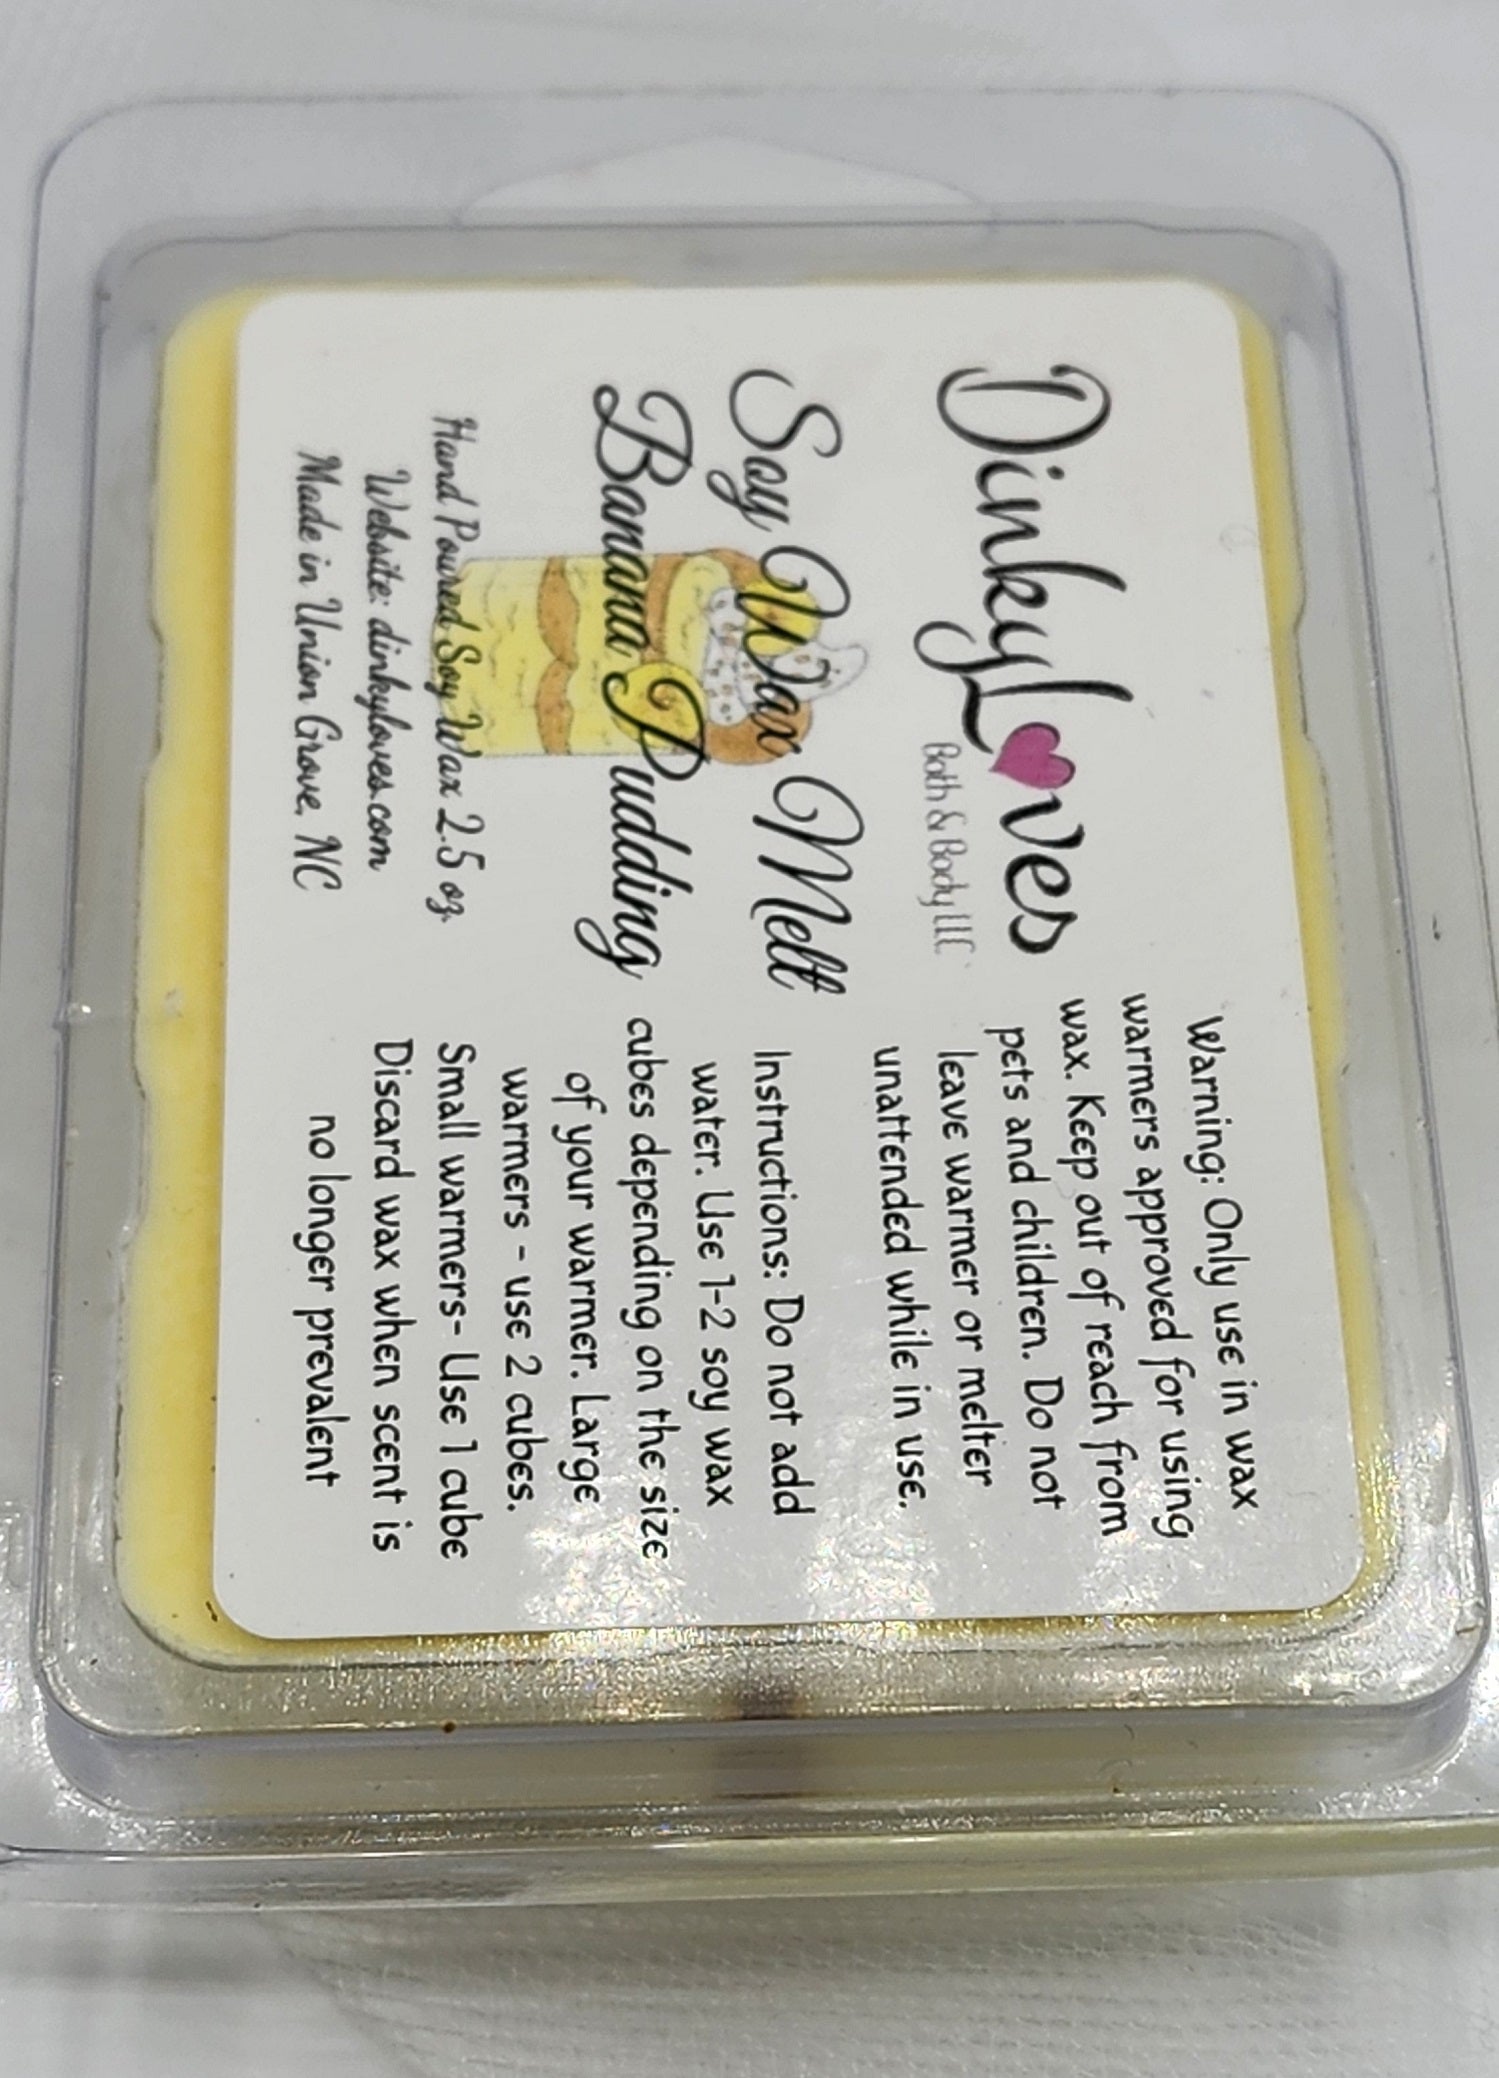 DinkyLoves
Bath & Body LLC
Soy Wax Melt
Banana Pudding
Hand Poured Soy Wax 2.5 oz.
Website: dinkyloves.com
Made in Union Grove, NC
Warning: Only use in wax
warmers approved for using
wax. Keep out of reach from
pets and children. Do not
leave warmer or melter
unattended while in use.
Instructions: Do not add
water. Use 1-2 soy wax
cubes depending on the size
of your warmer. Large
warmers - use 2 cubes.
Small warmers- Use 1 cube
Discard wax when scent is
no longer prevalent